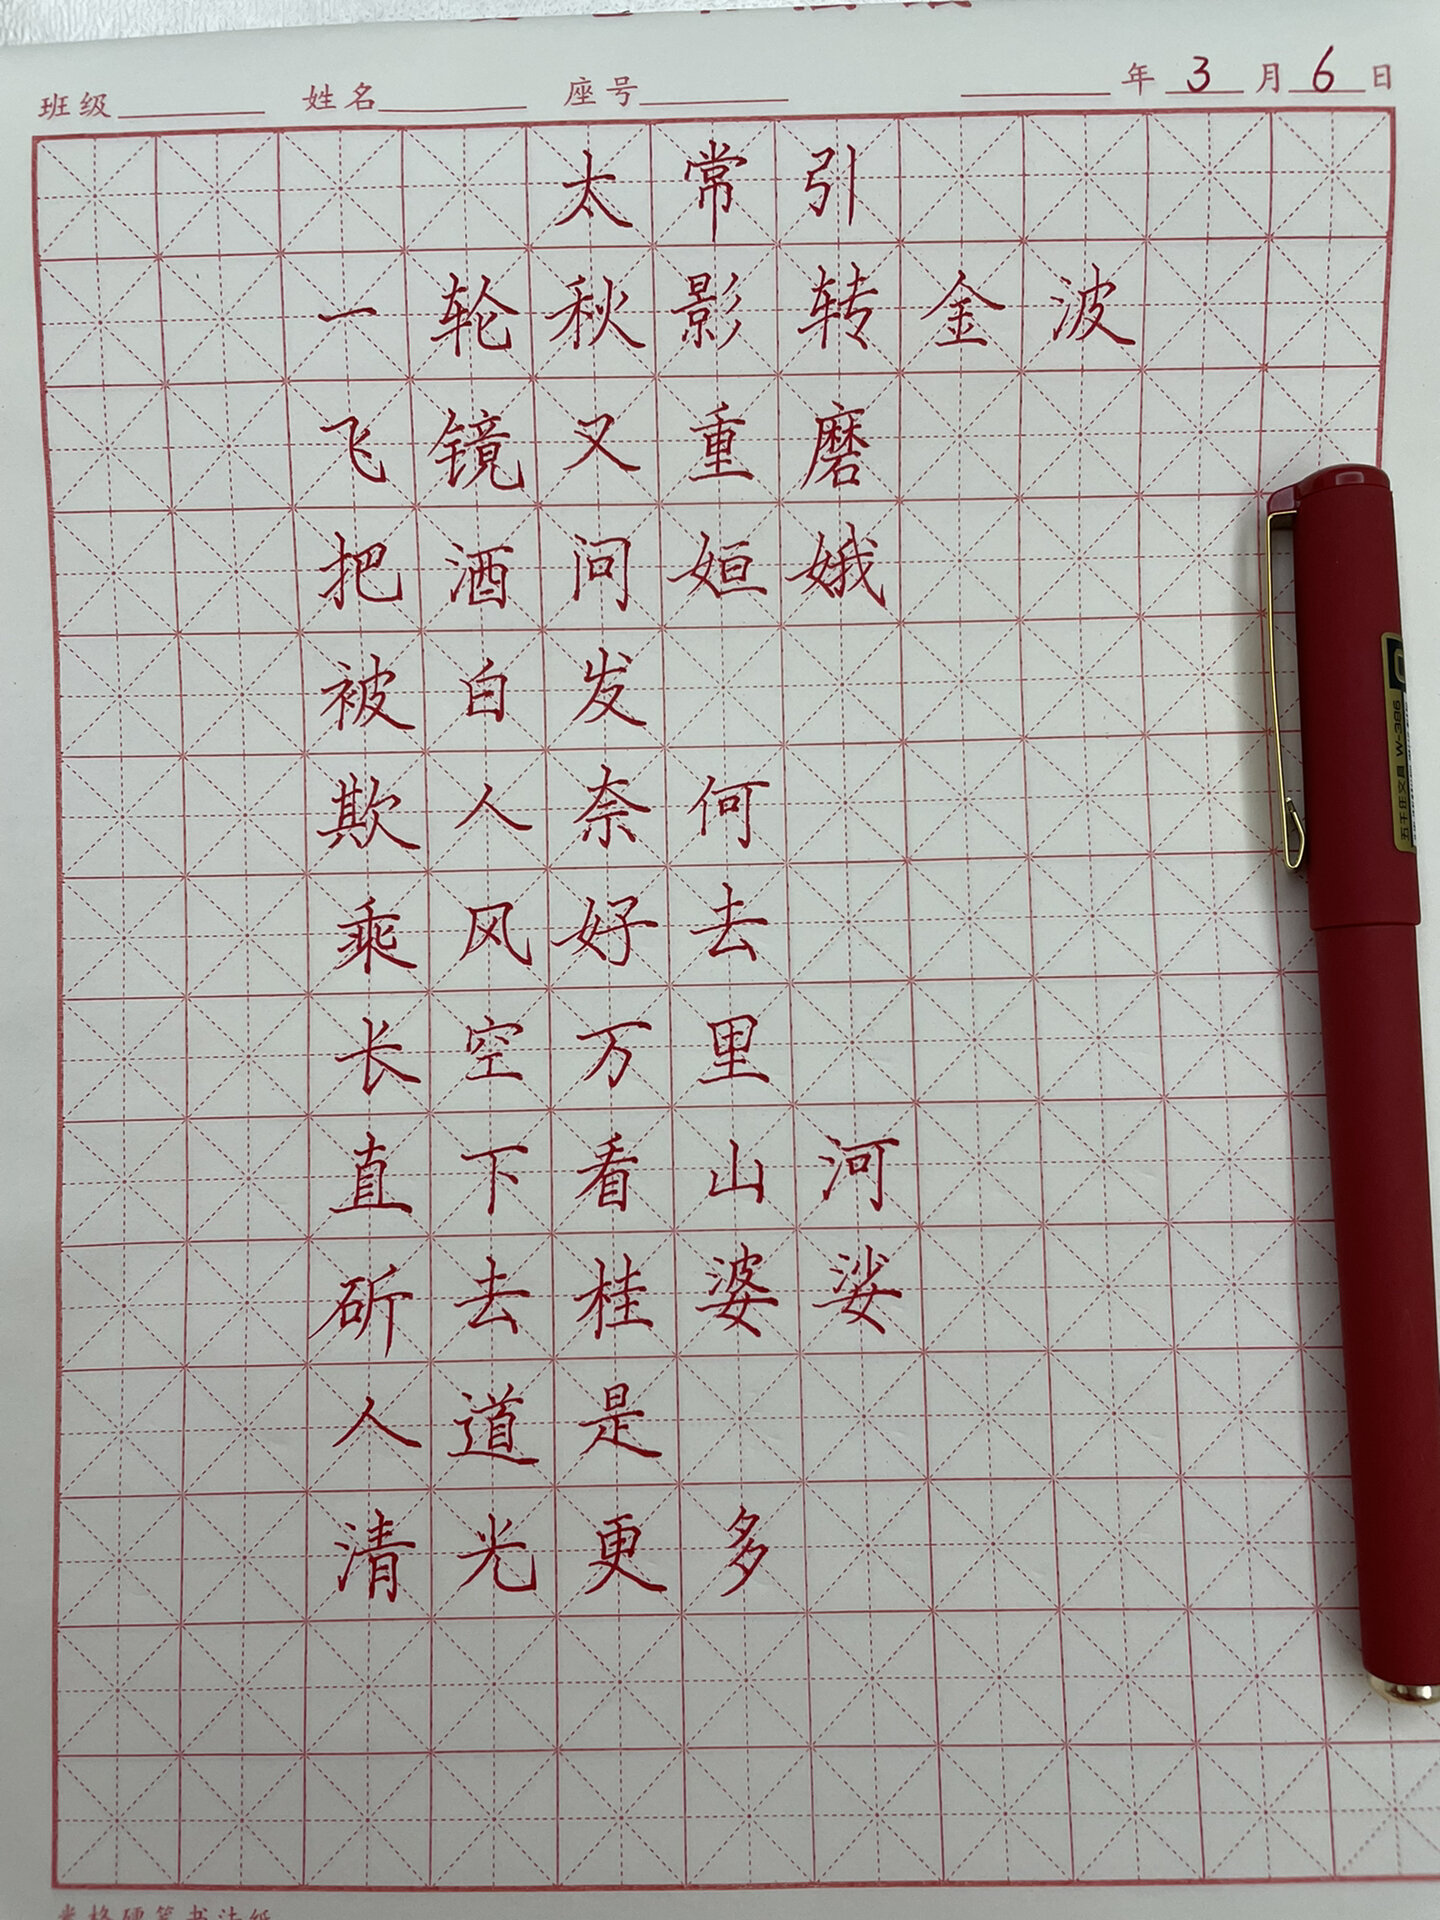 班级 姓名 座号 年 3 月 6 日
太常引
一轮秋影转金波
飞镜又重磨
把酒问姮娥
被白发
欺人奈何
乘风好去
长空万里
直下看山河
斫去桂婆娑
人道是
清光更多
五千年文具 W-386
米格硬笔书法纸